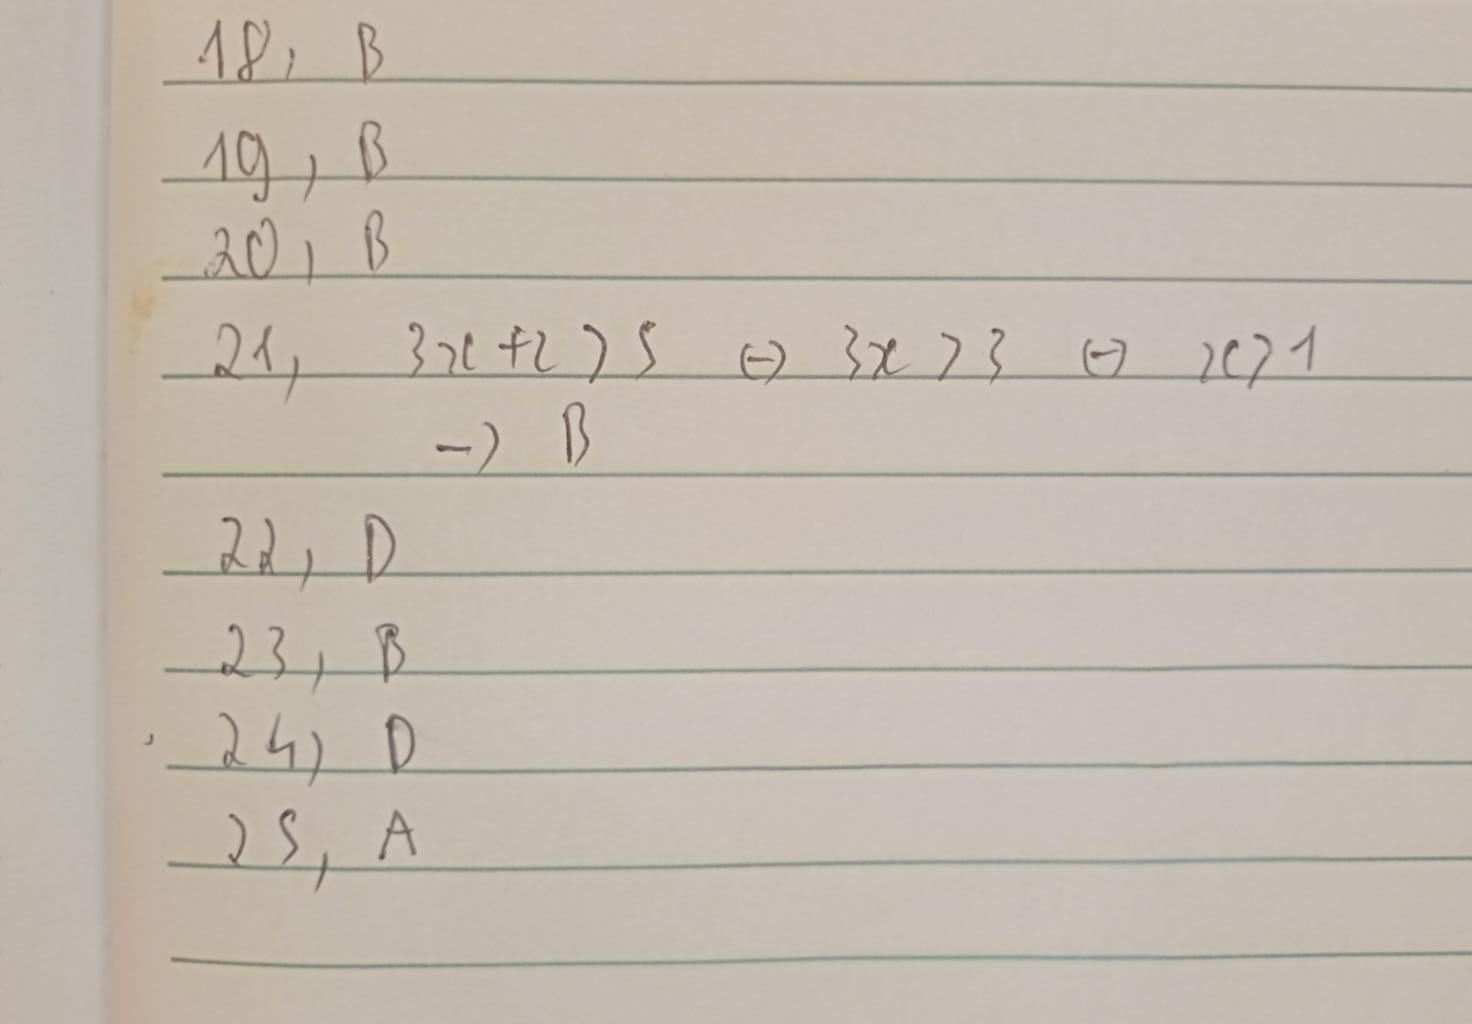 18, B
19, B
20, B
21, 3x+2>5 ⇔ 3x>3 ⇔ x>1
→ B
22, D
23, B
24, D
25, A